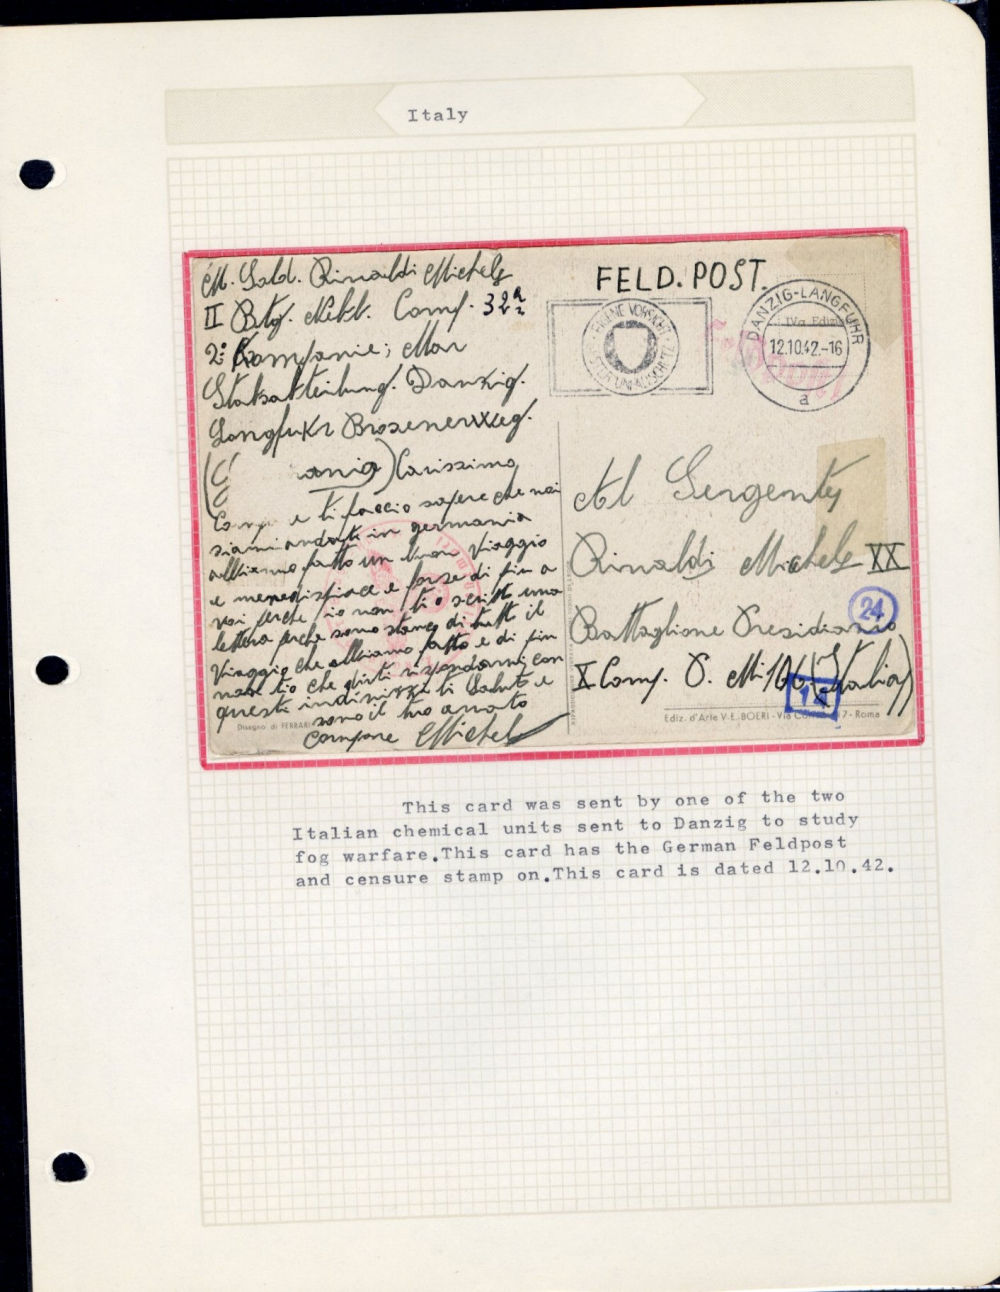 Italy
M. Sold. Rinaldi Michele
II Btg. Nebb. Comp. 32ª
2ª Kompanie; Mar
Danzig.
Langfuhr Brosenerweg.
Carissimo
e ti faccio sapere che noi
siami andati in germania
abbiamo fatto un buon viaggio
e forse di piu a
voi perche io non ti o scritto una
lettera perche sono stanco di tutto il
viaggio che abbiamo fatto e di piu
rispondermi con
questi indirizzi ti saluto e
sono il tuo
compare Michele
Disegno di FERRARI
FELD. POST.
EIGENE VORSICHT
UNFALLSCHUTZ
DANZIG-LANGFUHR
IVa Ediz
12.10.42.-16
a
Al Sergente
Rinaldi Michele XX
24
Battaglione Presidiario
X Comp. P. M. 106 (Italia)
Ediz. d'Arte V. E. BOERI - Via 7 - Roma
This card was sent by one of the two
Italian chemical units sent to Danzig to study
fog warfare.This card has the German Feldpost
and censure stamp on.This card is dated 12.10.42.